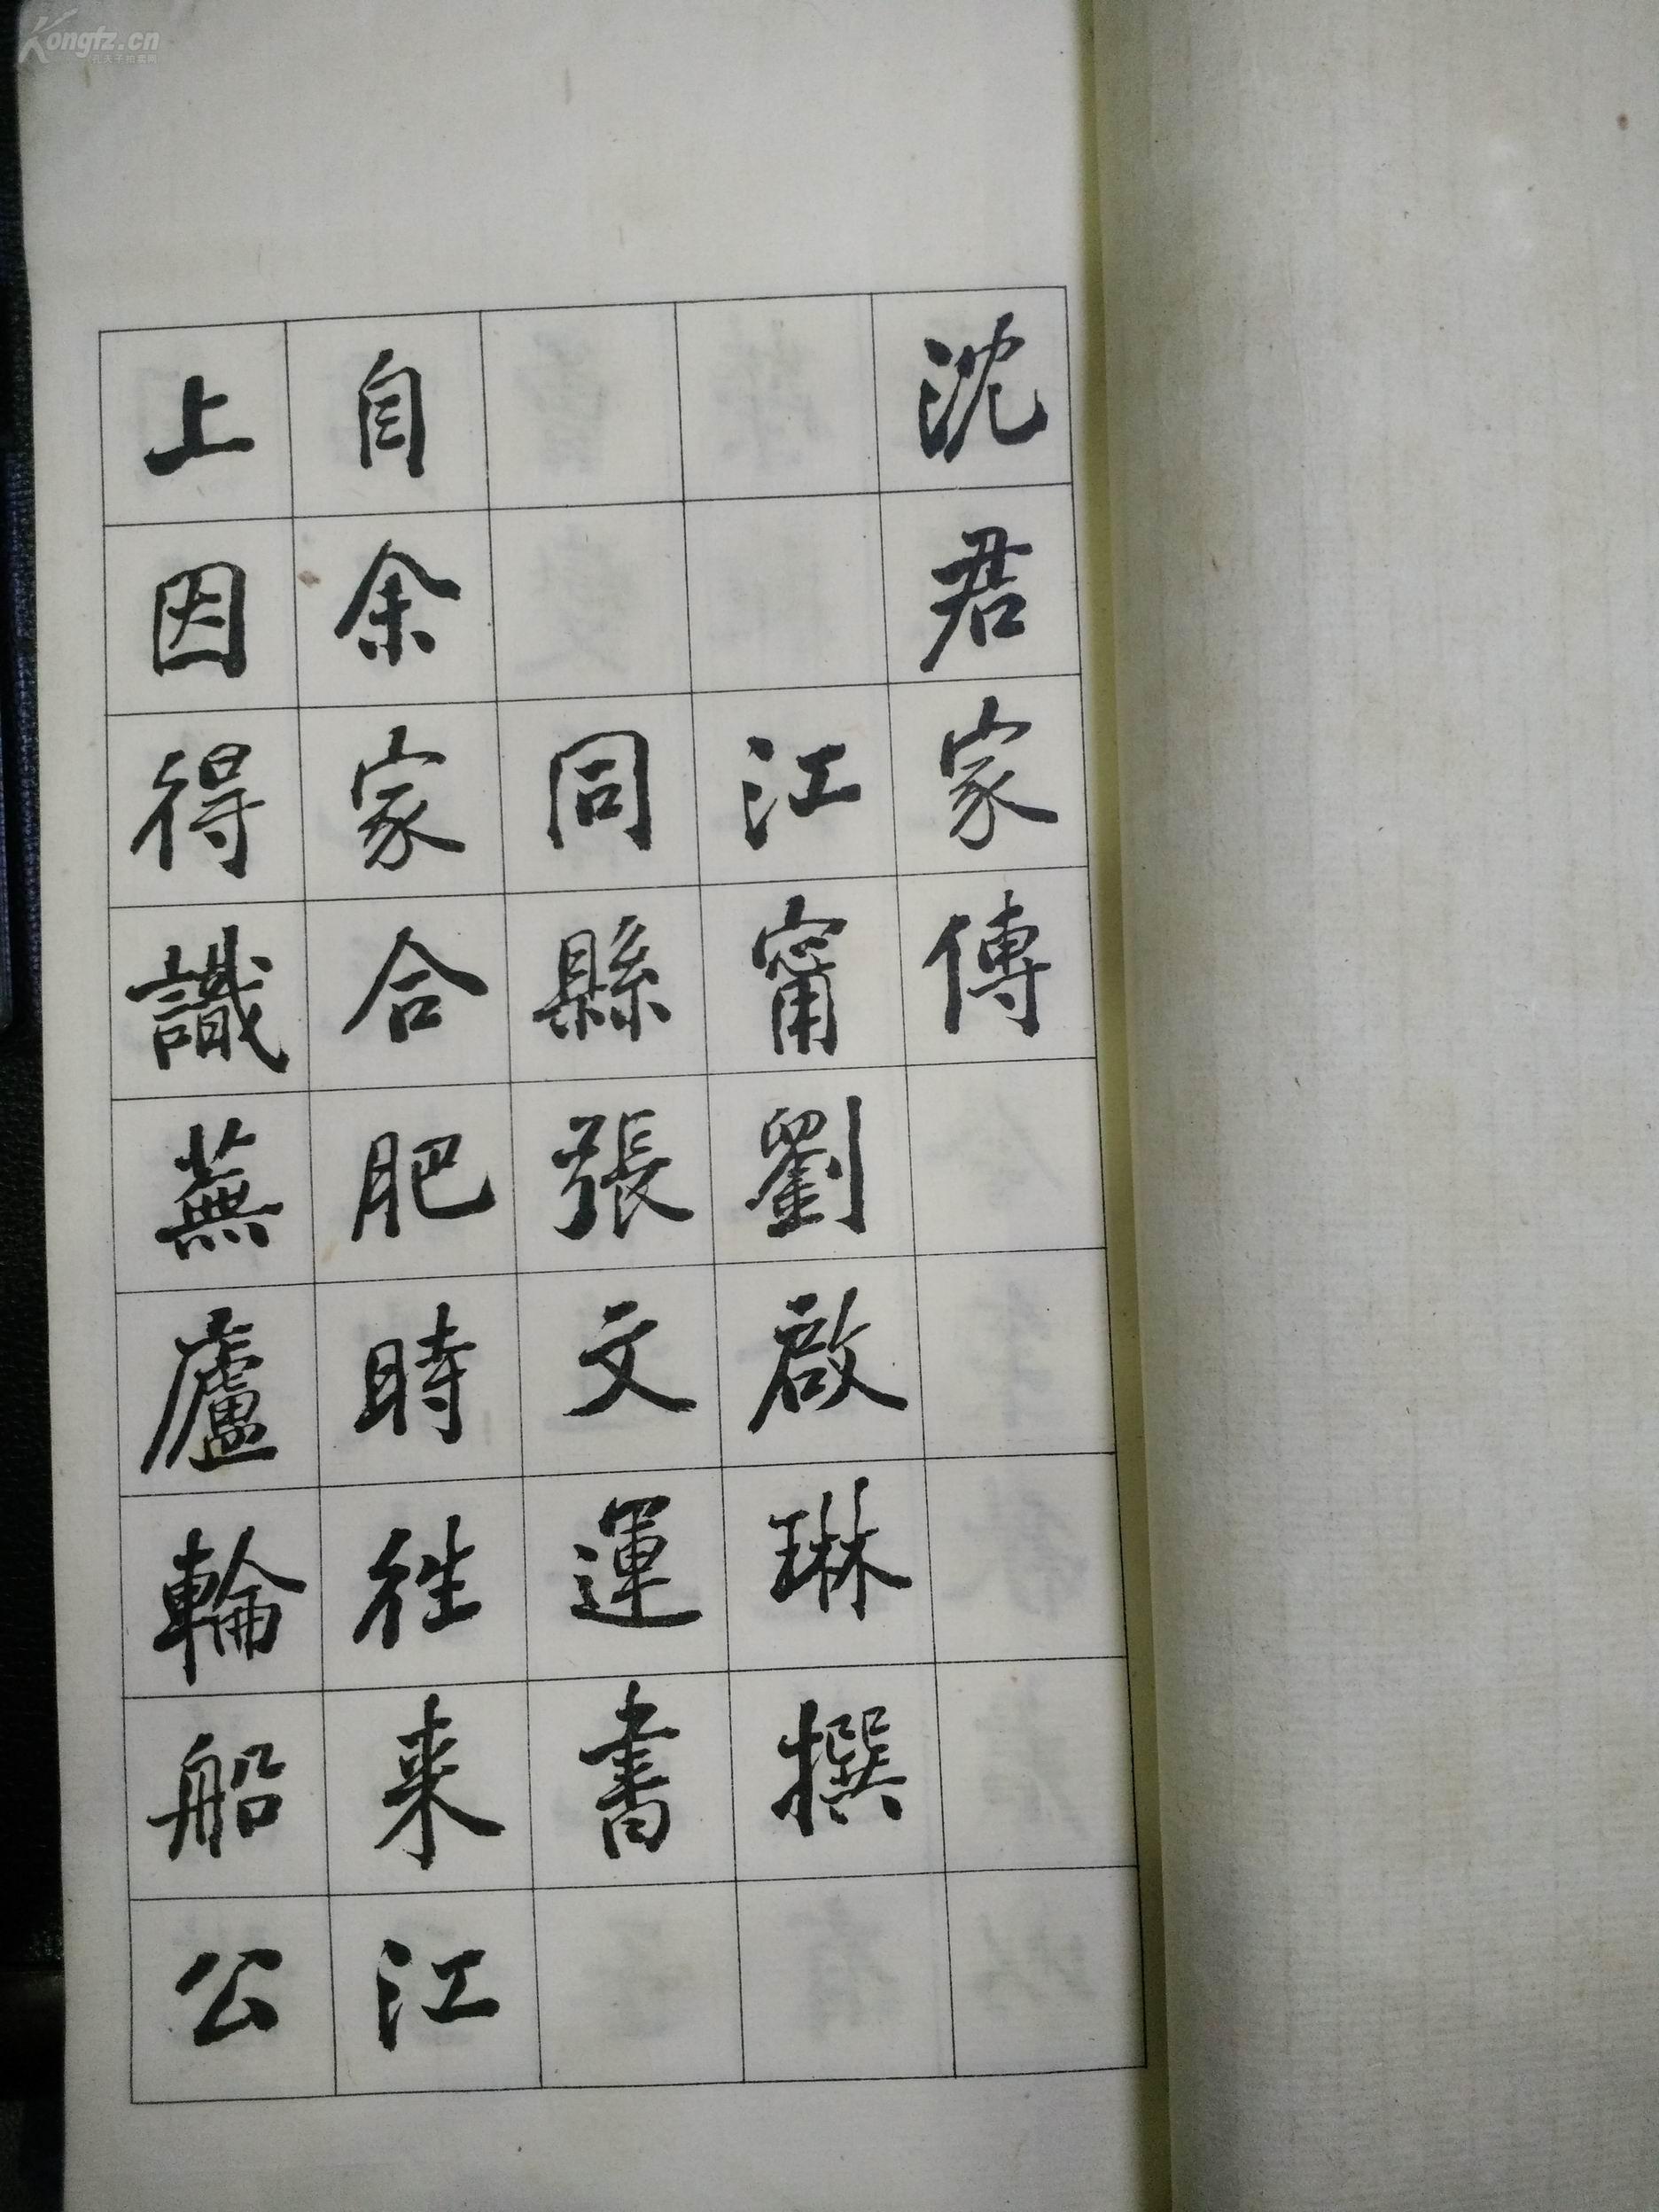 沈君家傳
江甯劉啟琳撰
同縣張文運書
自余家合肥時往来江
上因得識蕪廬輪船公
Kongfz.cn